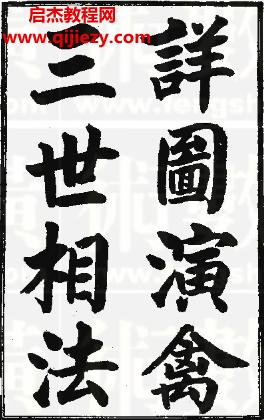 启杰教程网
www.qijiezy.com
詳圖演禽
三世相法